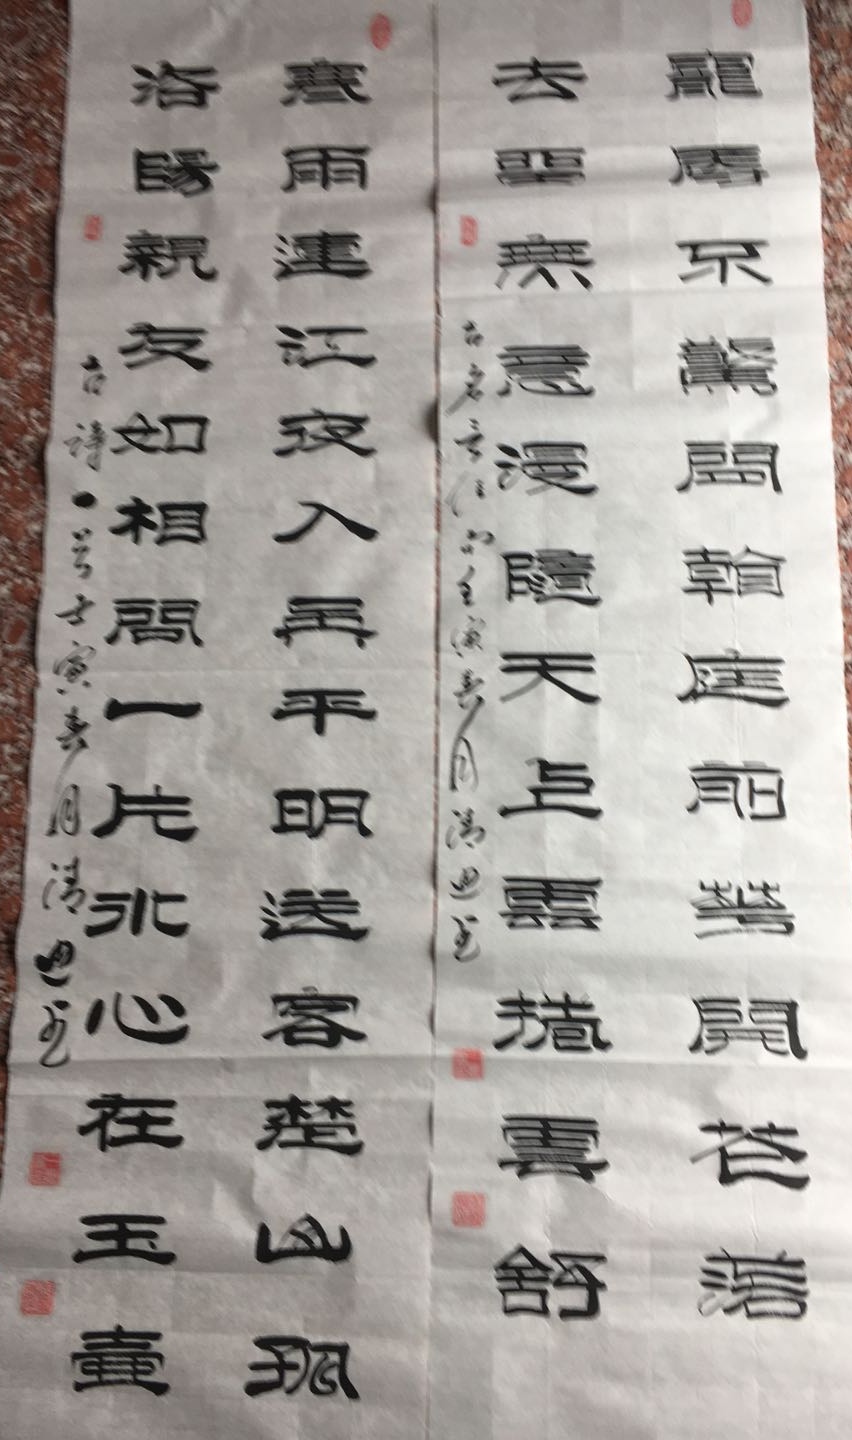 寵辱不驚閒看庭前華開花落
去留無意漫隨天上雲捲雲舒
古名言佳句壬寅春月清
寒雨連江夜入吳平明送客楚山孤
洛陽親友如相問一片冰心在玉壺
古詩一首壬寅春月清